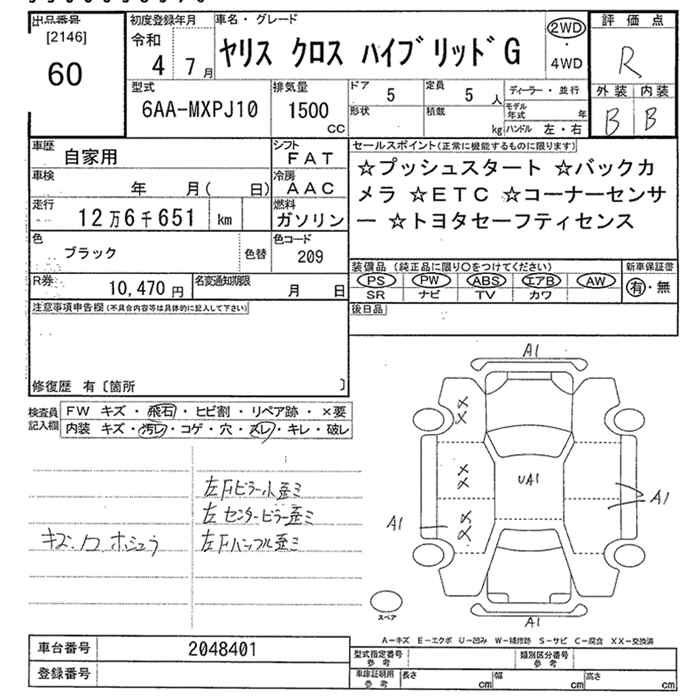 出品番号
[2146]
60
初度登録年月
令和
4 7月
車名・グレード
ヤリス クロス ハイブリッドG
2WD
・
4WD
評価点
R
外装 内装
B B
型式
6AA-MXPJ10
排気量
1500
CC
ドア
5
定員
5 人
形状
積載
kg
ディーラー・並行
モデル年式 年
ハンドル 左・右
車歴
自家用
シフト
FAT
車検
年 月( 日)
冷房
AAC
走行
12万6千651 km
燃料
ガソリン
色
ブラック
色替
色コード
209
R券
10,470円
名変通知期限
月 日
セールスポイント(正常に機能するものに限ります)
☆プッシュスタート ☆バックカ
メラ ☆ETC ☆コーナーセンサ
ー ☆トヨタセーフティセンス
装備品(純正品に限り〇をつけてください)
PS PW ABS エアB AW
SR ナビ TV カワ
新車保証書
有・無
後日品
注意事項申告欄(不具合内容等は具体的に記入して下さい)
修復歴 有〔箇所 〕
検査員
記入欄
FW キズ・飛石・ヒビ割・リペア跡・×要
内装 キズ・汚レ・コゲ・穴・スレ・キレ・破レ
左Fピラー小歪ミ
左センターピラー歪ミ
キズ・凹 ホシュラ
左
A1
××
××
××
UA1
A1
A1
A1
スペア
A-キズ E-エクボ U-凹み W-補修跡 S-サビ C-腐食 XX-交換済
車台番号
2048401
登録番号
型式指定番号
参考
類別区分番号
参考
車庫証明用
参考
長さ cm
幅 cm
高さ cm